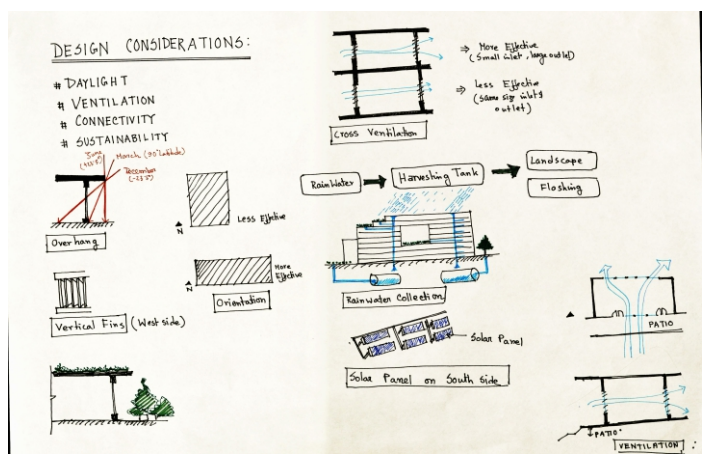 DESIGN CONSIDERATIONS:
# DAYLIGHT
# VENTILATION
# CONNECTIVITY
# SUSTAINABILITY
June
March (30° latitude)
December
(-23.5)
Overhang
N
Less Effective
N
More
Effective
Orientation
Vertical Fins (West side)
⇒ More Effective
(Small inlet, large outlet)
⇒ Less Effective
(Same size inlet &
outlet)
Cross Ventilation
RainWater
Harvesting Tank
Landscape
Flushing
Rainwater Collection
Solar Panel
Solar Panel on South Side
PATIO
PATIO
VENTILATION